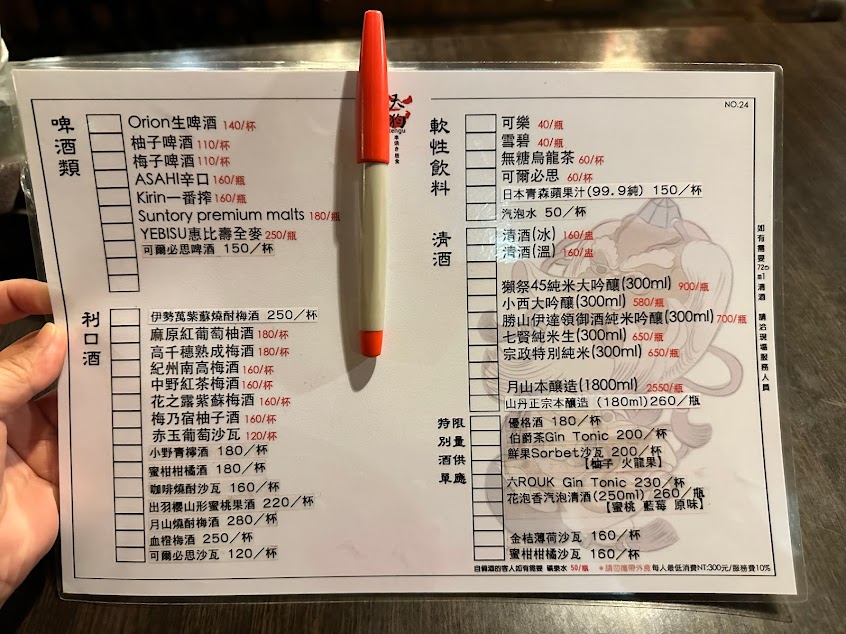 NO.24
天狗
tengu
串燒き酒食
啤酒類
Orion生啤酒 140/杯
柚子啤酒 110/杯
梅子啤酒 110/杯
ASAHI辛口 160/瓶
Kirin一番搾 160/瓶
Suntory premium malts 180/瓶
YEBISU惠比壽全麥 250/瓶
可爾必思啤酒 150／杯
利口酒
伊勢萬紫蘇燒酎梅酒 250／杯
麻原紅葡萄柚酒 180/杯
高千穗熟成梅酒 180/杯
紀州南高梅酒 160/杯
中野紅茶梅酒 160/杯
花之露紫蘇梅酒 160/杯
梅乃宿柚子酒 160/杯
赤玉葡萄沙瓦 120/杯
小野青檸酒 180／杯
蜜柑柑橘酒 180／杯
咖啡燒酎沙瓦 160／杯
出羽櫻山形蜜桃果酒 220／杯
月山燒酎梅酒 280／杯
血橙梅酒 250／杯
可爾必思沙瓦 120／杯
軟性飲料
可樂 40/瓶
雪碧 40/瓶
無糖烏龍茶 60/杯
可爾必思 60/杯
日本青森蘋果汁(99.9純) 150／杯
汽泡水 50／杯
清酒
清酒(冰) 160/盅
清酒(溫) 160/盅
獺祭45純米大吟釀(300ml) 900/瓶
小西大吟釀(300ml) 580/瓶
勝山伊達領御酒純米吟釀(300ml) 700/瓶
七賢純米生(300ml) 650/瓶
宗政特別純米(300ml) 650/瓶
月山本釀造(1800ml) 2550/瓶
山丹正宗本釀造 (180ml)260／瓶
特別酒單
限量供應
優格酒 180／杯
伯爵茶Gin Tonic 200／杯
鮮果Sorbet沙瓦 200／杯
【柚子 火龍果】
六ROUK Gin Tonic 230／杯
花泡香汽泡清酒(250ml) 260／瓶
【蜜桃 藍莓 原味】
金桔薄荷沙瓦 160／杯
蜜柑柑橘沙瓦 160／杯
如有需要720ml清酒 請洽現場服務人員
自備酒的客人如有需要 礦泉水 50/瓶 *請勿攜帶外食 每人最低消費NT:300元/服務費10%